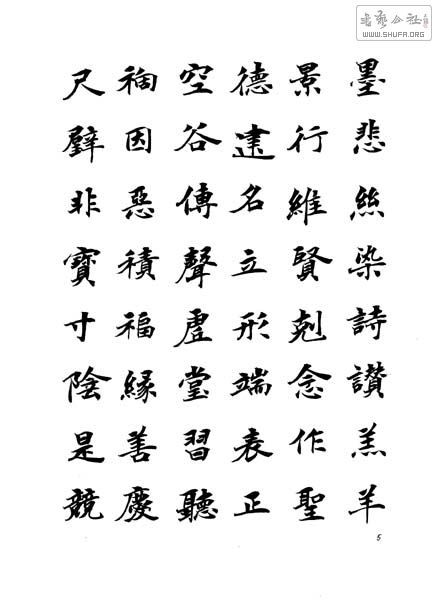 書藝公社
WWW.SHUFA.ORG
墨悲絲染詩讚羔羊
景行維賢剋念作聖
德建名立形端表正
空谷傳聲虛堂習聽
禍因惡積福緣善慶
尺璧非寶寸陰是競
5